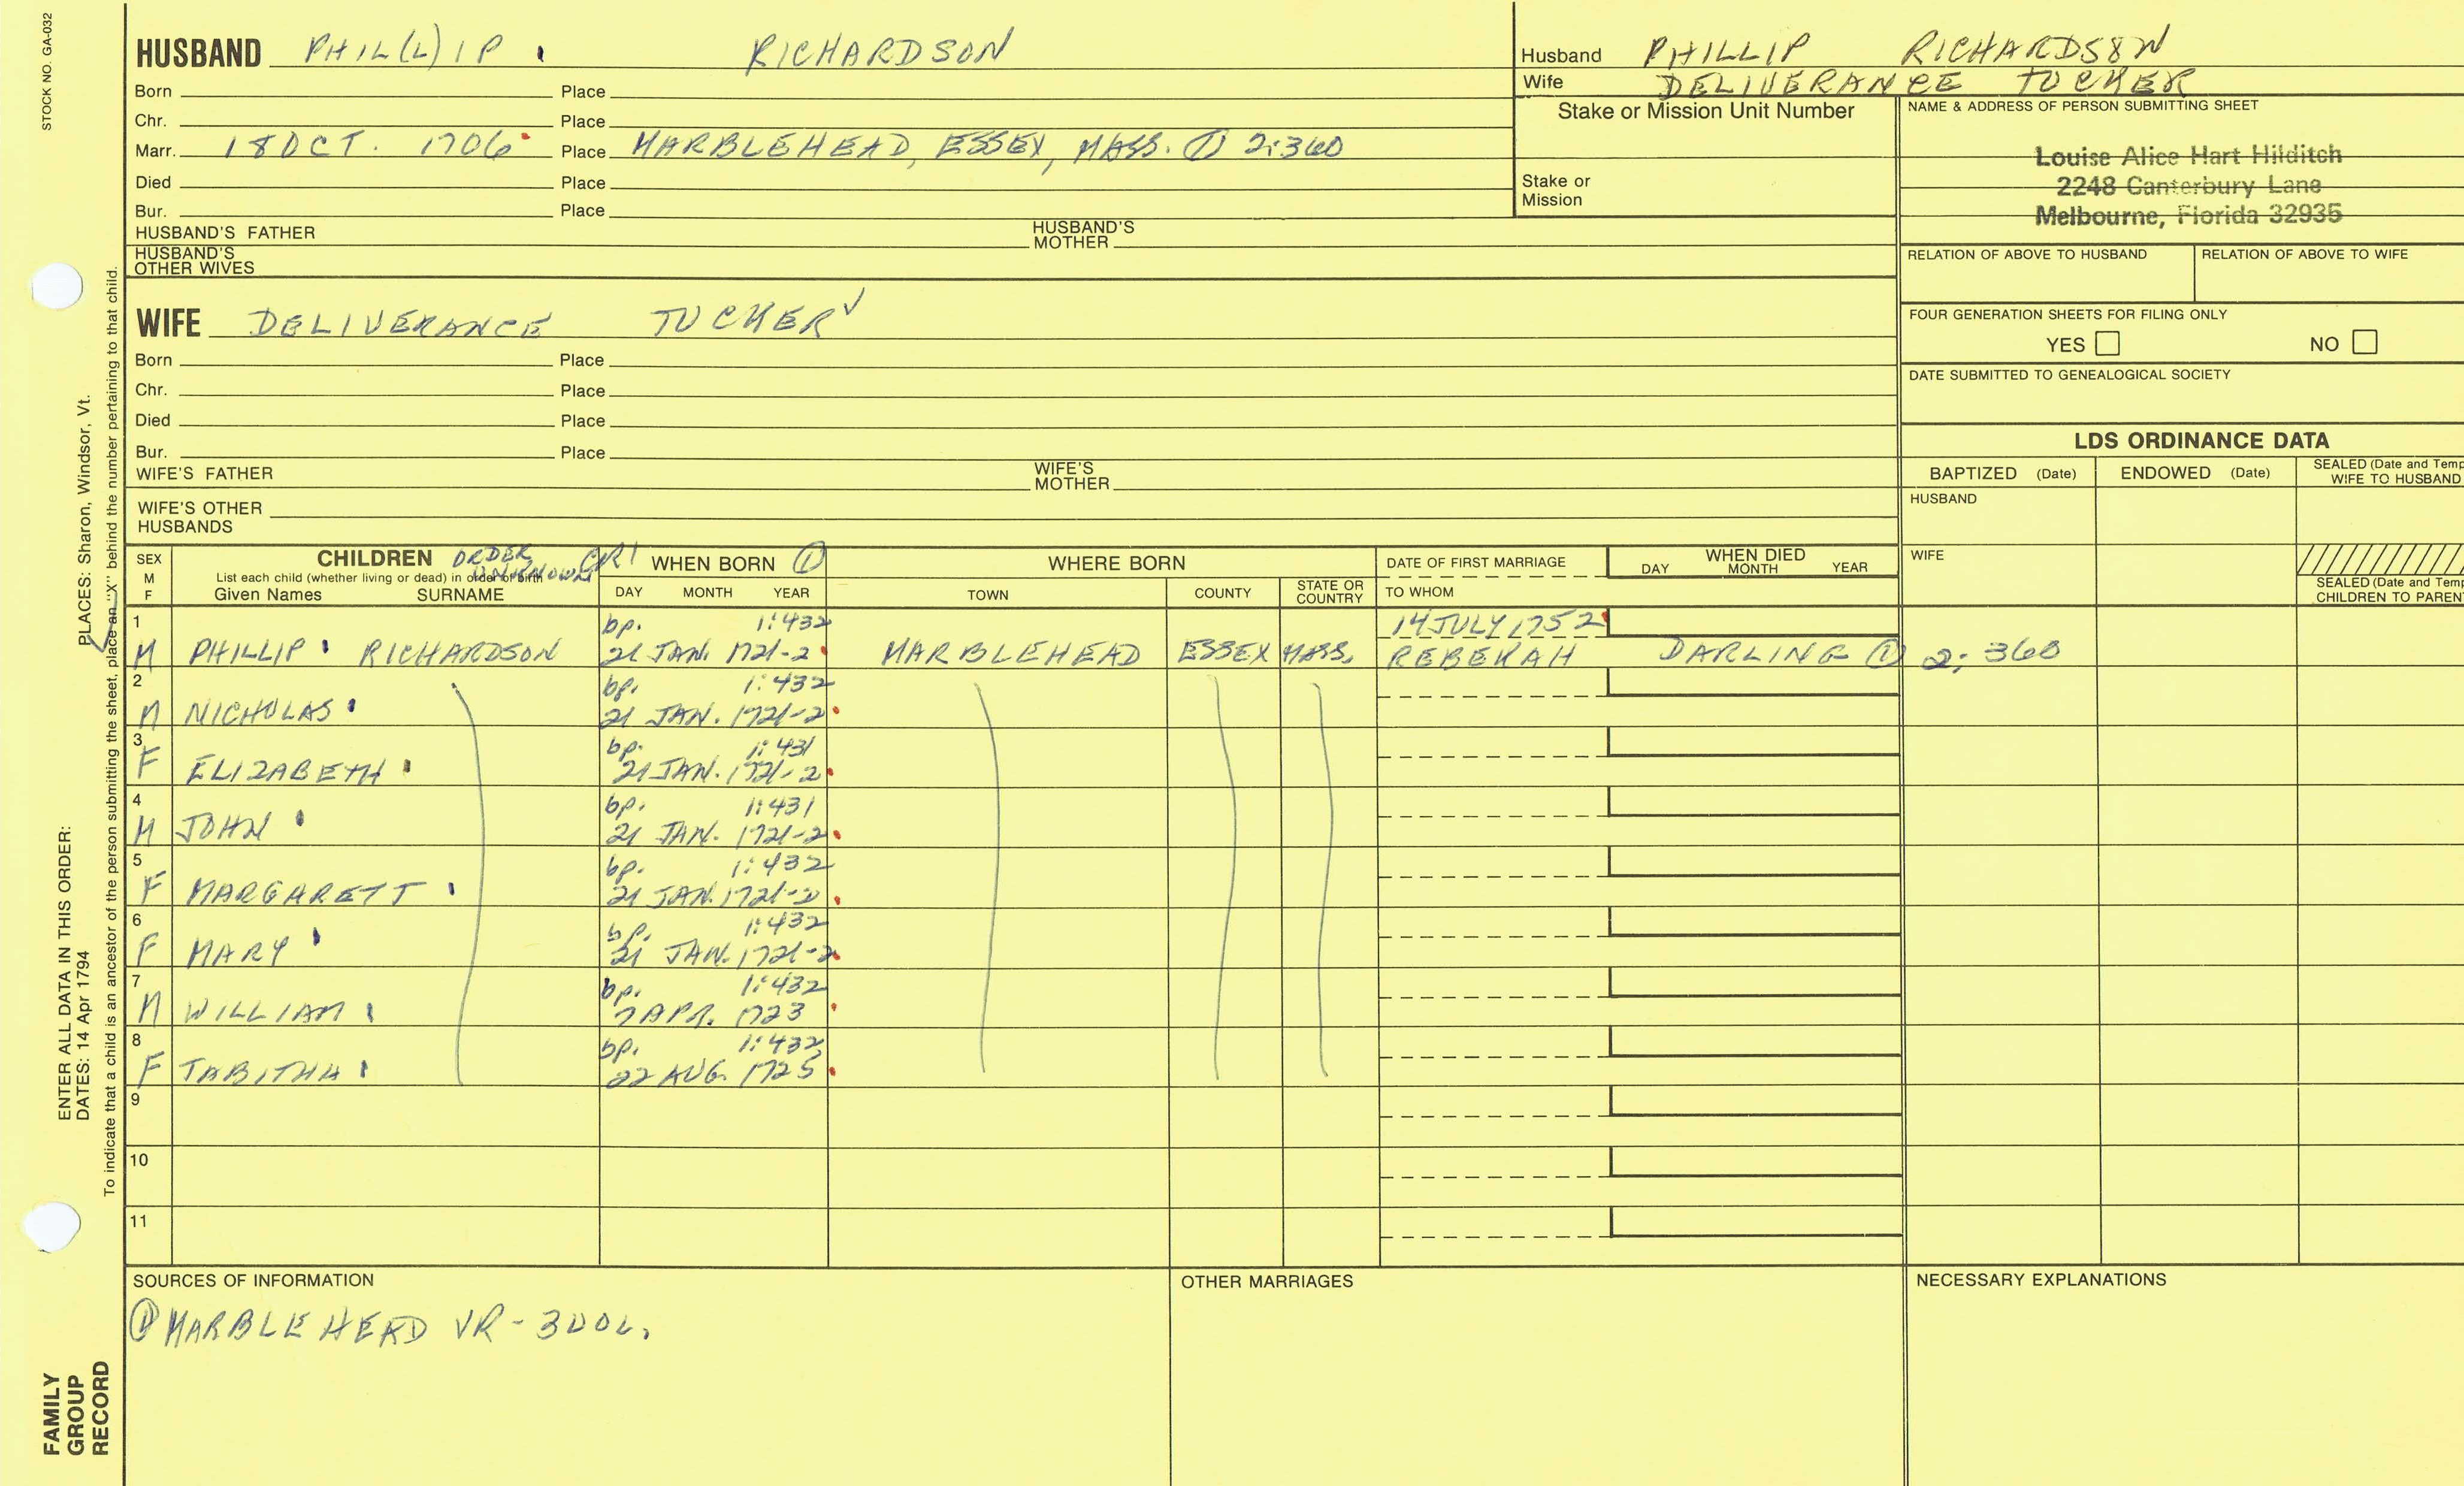 STOCK NO. GA-032
HUSBAND PHIL(L)IP RICHARDSON
Born Place
Chr. Place
Marr. 18 OCT. 1706 Place MARBLEHEAD, ESSEX, MASS. ① 2:360
Died Place
Bur. Place
HUSBAND'S FATHER HUSBAND'S MOTHER
HUSBAND'S OTHER WIVES
Husband PHILLIP RICHARDSON
Wife DELIVERANCE TUCKER
Stake or Mission Unit Number
Stake or Mission
NAME & ADDRESS OF PERSON SUBMITTING SHEET
Louise Alice Hart Hilditch
2248 Canterbury Lane
Melbourne, Florida 32935
RELATION OF ABOVE TO HUSBAND RELATION OF ABOVE TO WIFE
FOUR GENERATION SHEETS FOR FILING ONLY
YES NO
DATE SUBMITTED TO GENEALOGICAL SOCIETY
WIFE DELIVERANCE TUCKER ✓
Born Place
Chr. Place
Died Place
Bur. Place
WIFE'S FATHER WIFE'S MOTHER
WIFE'S OTHER HUSBANDS
LDS ORDINANCE DATA
BAPTIZED (Date) ENDOWED (Date) SEALED (Date and Temp
WIFE TO HUSBAND
HUSBAND
WIFE
SEALED (Date and Temp
CHILDREN TO PAREN
SEX
M
F
CHILDREN ORDER UNKNOWN
List each child (whether living or dead) in order of birth
Given Names SURNAME
WHEN BORN ①
DAY MONTH YEAR
WHERE BORN
TOWN COUNTY STATE OR COUNTRY
DATE OF FIRST MARRIAGE
TO WHOM
WHEN DIED
DAY MONTH YEAR
1 bp. 1:432 14 JULY 1752
M PHILLIP RICHARDSON 21 JAN. 1721-2 MARBLEHEAD ESSEX MASS. REBEKAH DARLING ① 2:360
2 bp. 1:432
M NICHOLAS 21 JAN. 1721-2
3 bp. 1:431
F ELIZABETH 21 JAN. 1721-2
4 bp. 1:431
M JOHN 21 JAN. 1721-2
5 bp. 1:432
F MARGARETT 21 JAN. 1721-2
6 bp. 1:432
F MARY 21 JAN. 1721-2
7 bp. 1:432
M WILLIAM 7 APR. 1723
8 bp. 1:432
F TABITHA 22 AUG. 1725
9
10
11
SOURCES OF INFORMATION
① MARBLEHEAD VR-
OTHER MARRIAGES
NECESSARY EXPLANATIONS
PLACES: Sharon, Windsor, Vt.
ENTER ALL DATA IN THIS ORDER:
DATES: 14 Apr 1794
To indicate that a child is an ancestor of the person submitting the sheet, place an "X" behind the number pertaining to that child.
FAMILY
GROUP
RECORD